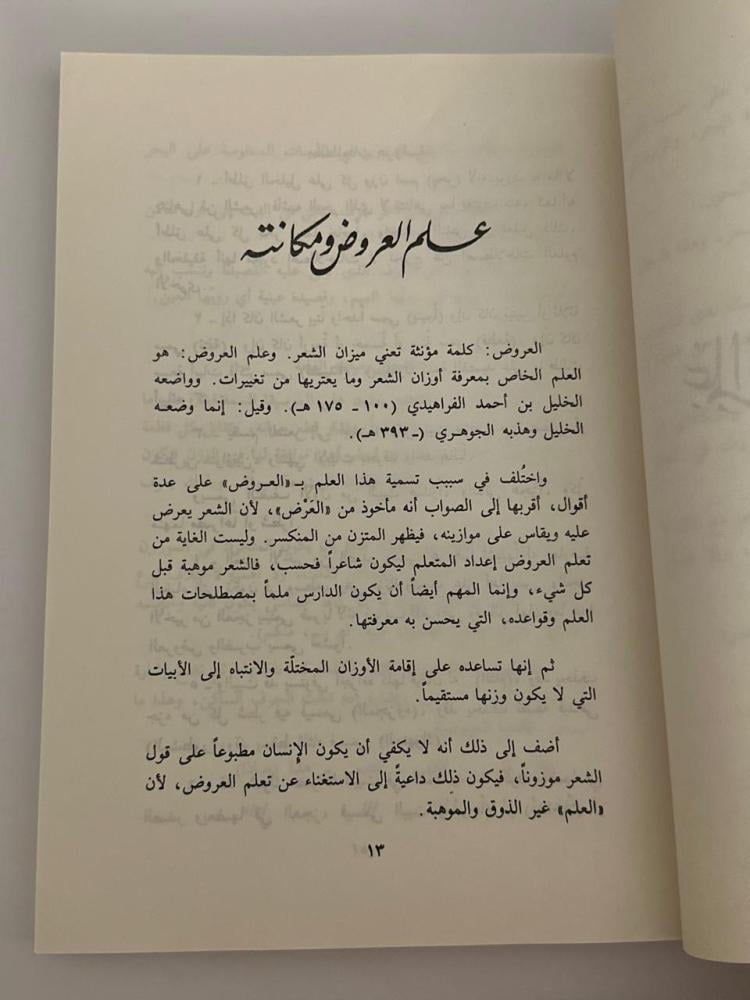 علم العروض ومكانته
العروض: كلمة مؤنثة تعني ميزان الشعر. وعلم العروض: هو
العلم الخاص بمعرفة أوزان الشعر وما يعتريها من تغييرات. وواضعه
الخليل بن أحمد الفراهيدي (١٠٠ ـ ١٧٥ هـ). وقيل: إنما وضعه
الخليل وهذبه الجوهري (ـ ٣٩٣ هـ).
واختُلف في سببب تسمية هذا العلم بـ «العروض» على عدة
أقوال، أقربها إلى الصواب أنه مأخوذ من «العَرْض»، لأن الشعر يعرض
عليه ويقاس على موازينه، فيظهر المتزن من المنكسر. وليست الغاية من
تعلم العروض إعداد المتعلم ليكون شاعراً فحسب، فالشعر موهبة قبل
كل شيء، وإنما المهم أيضاً أن يكون الدارس ملماً بمصطلحات هذا
العلم وقواعده، التي يحسن به معرفتها.
ثم إنها تساعده على إقامة الأوزان المختلّة والانتباه إلى الأبيات
التي لا يكون وزنها مستقيماً.
أضف إلى ذلك أنه لا يكفي أن يكون الإنسان مطبوعاً على قول
الشعر موزوناً، فيكون ذلك داعيةً إلى الاستغناء عن تعلم العروض، لأن
«العلم» غير الذوق والموهبة.
١٣